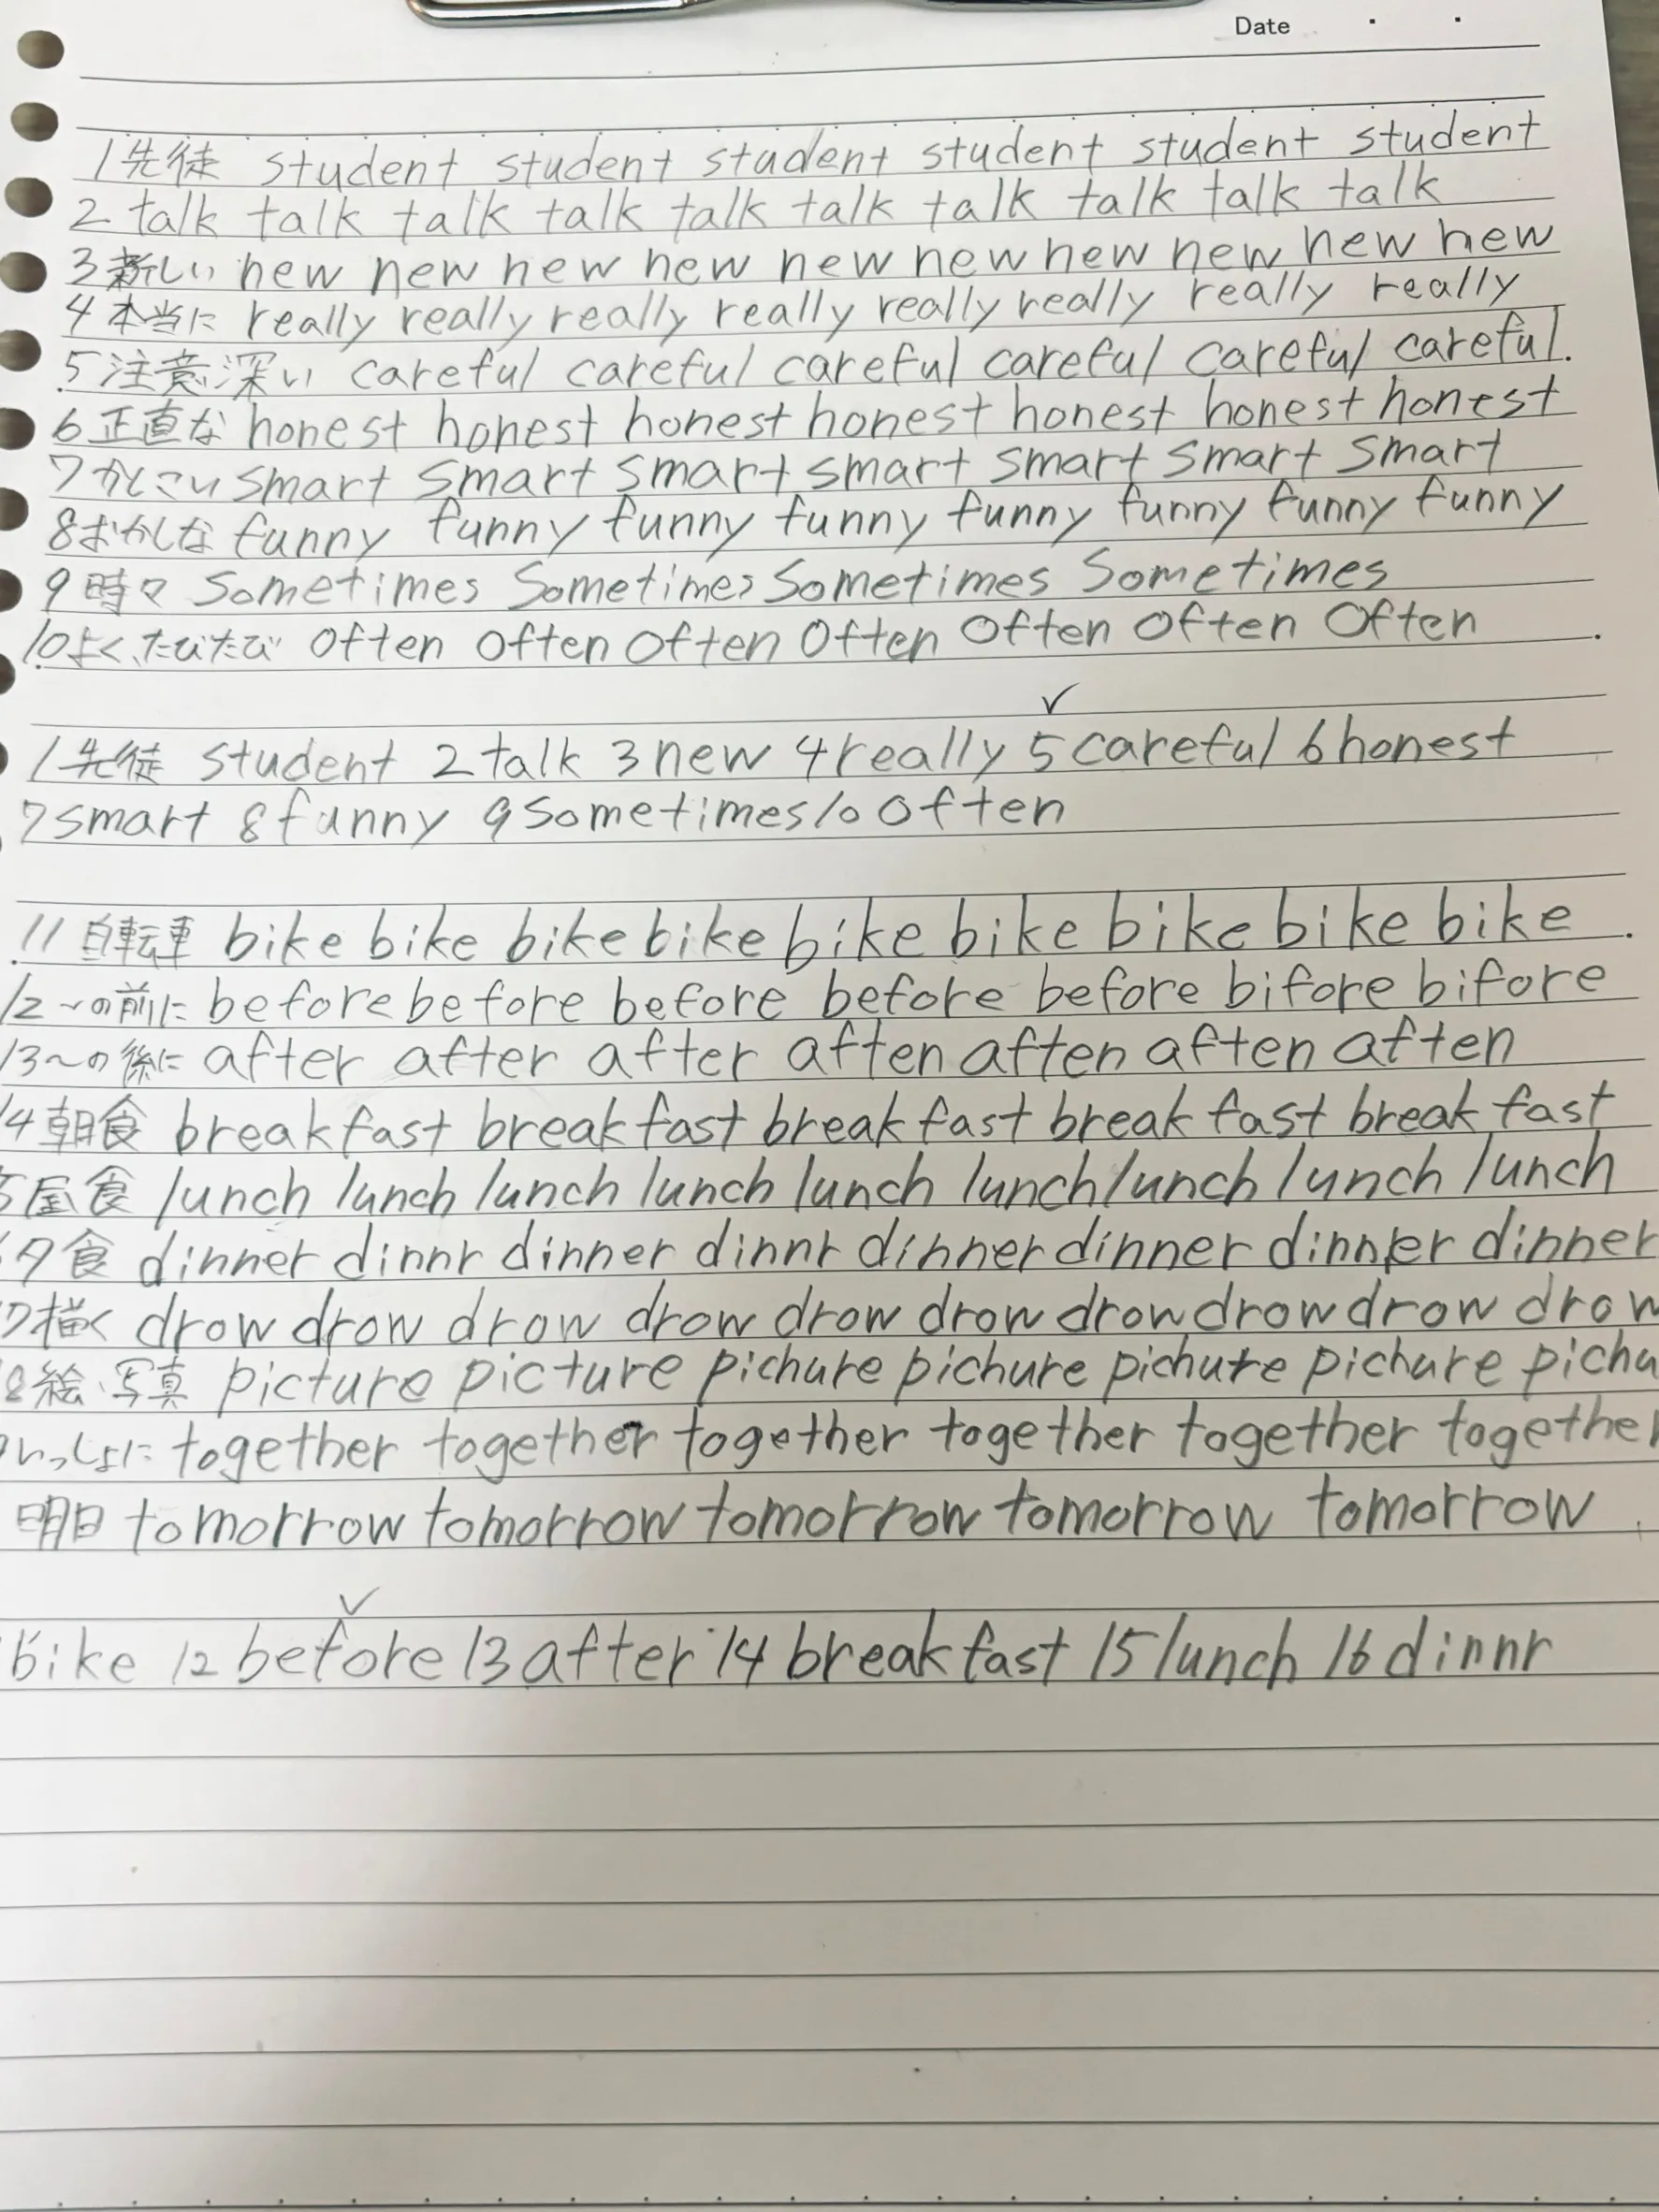 Date
1先徒 student student student student student student
2 talk talk talk talk talk talk talk talk talk talk
3新しい new new new new new new new new new new
4本当に really really really really really really really really
5注意深い careful careful careful careful careful careful.
6正直な honest honest honest honest honest honest honest
7かしこい smart smart smart smart smart smart smart
8おかしな funny funny funny funny funny funny funny funny
9時々 Sometimes Sometimes Sometimes Sometimes
10よく、たびたび often often often often often often often
1先徒 student 2 talk 3 new 4 really 5 careful 6 honest
7 smart 8 funny 9 Sometimes 10 often
11自転車 bike bike bike bike bike bike bike bike bike
12〜の前に before before before before before bifore bifore
13〜の後に after after after aften aften aften aften
14朝食 breakfast breakfast breakfast breakfast breakfast
5昼食 lunch lunch lunch lunch lunch lunch lunch lunch lunch
夕食 dinner dinnr dinner dinnr dinner dinner dinner dinner
7描く drow drow drow drow drow drow drow drow drow drow
8絵、写真 picture picture pichure pichure pichure pichure pichu
9いっしょに together together together together together together
明日 tomorrow tomorrow tomorrow tomorrow tomorrow
bike 12 before 13 after 14 breakfast 15 lunch 16 dinnr